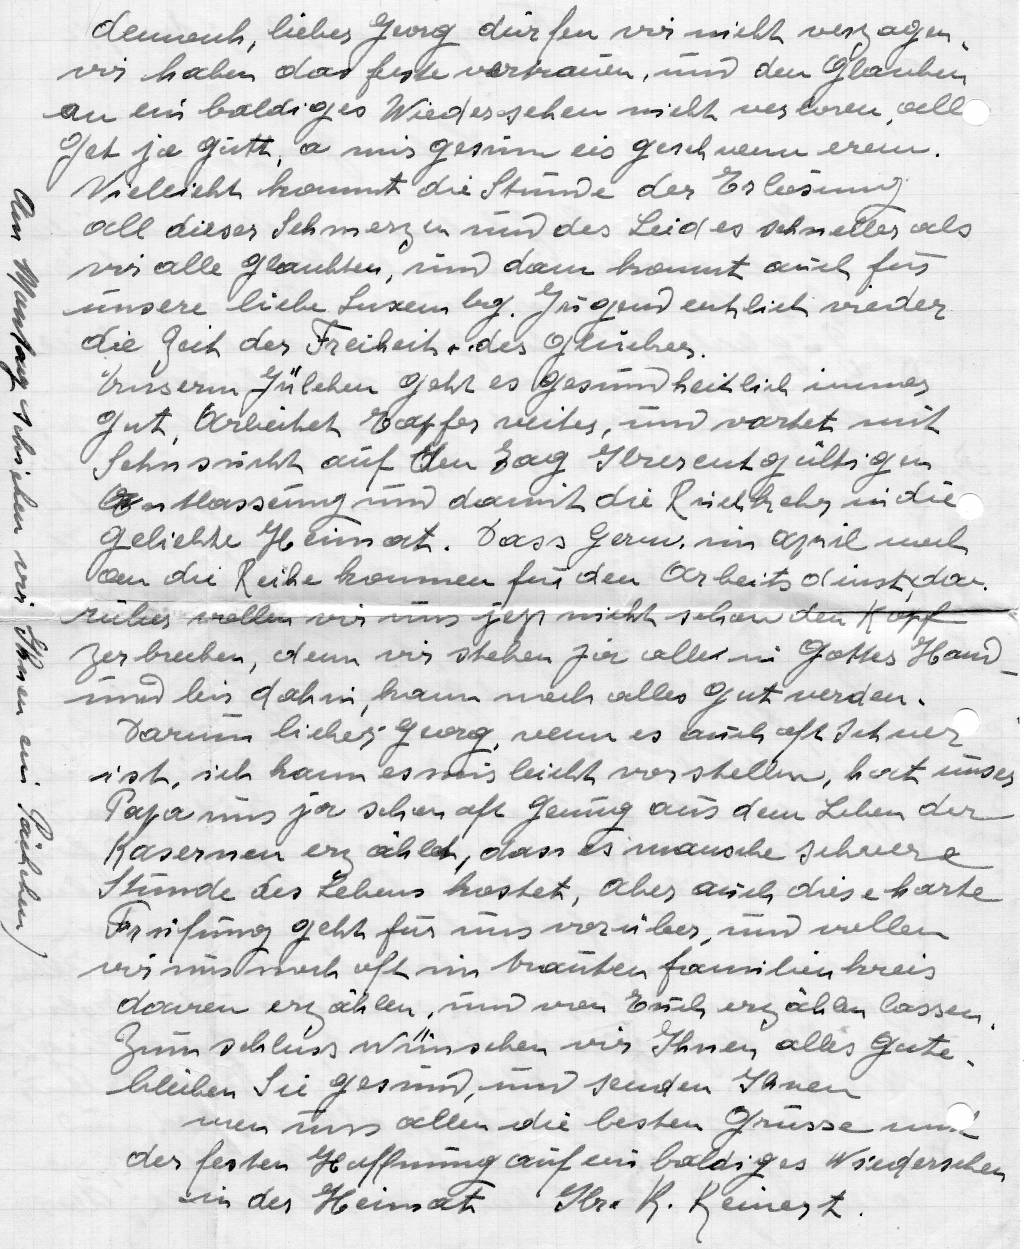 dennoch, lieber Georg dürfen wir nicht verzagen,
wir haben das feste vertrauen, und den Glauben
an ein baldiges Wiedersehen nicht verloren, all
Get ja gutt, a mis gesinn eis geschwenn erem.
Vieleicht kommt die Stunde der Erlösung
all dieser Schmerzen und des Leides schneller als
wir alle glaubten, und dann kommt auch für
unsere liebe Luxembg. Jugend entlich wieder
die Zeit der Freiheit u. des Glückes.
Unserm Jülchen geht es gesundheitlich immer
gut, Arbeitet Tapfer weiter, und wartet mit
Sehnsucht auf den Tag Ihrer entgültigen
Entlassung und damit die Rückkehr in die
geliebte Heimat. Dass Germ. im April noch
an die Reihe kommen für den Arbeitsdinst, da-
rüber wollen wir uns jetzt nicht schon den Kopf
zerbrechen, denn wir stehen ja alle in Gottes Hand
und bis dahin, kann noch alles gut werden.
Darum lieber Georg, wenn es auch oft Schwer
ist, ich kann es mir leicht vorstellen, hat unser
Papa uns ja schon oft genug aus dem Leben der
Kasernen erzählt, dass es manche schwere
Stunde des Lebens kostet, aber auch diese harte
Prüfung geht für uns vorüber, und wollen
wir uns noch oft im trauten familienkreis
davon erzählen, und von Euch erzählen lassen.
Zum schluss wünschen wir Ihnen alles Gute,
bleiben Sie gesund, und senden Ihnen
von uns allen die besten Grüsse und
der festen Hoffnung auf ein baldiges Wiedersehen
in der Heimat Ihr. K. Reinert.
Am Montag schicken wir Ihnen ein Päckchen)